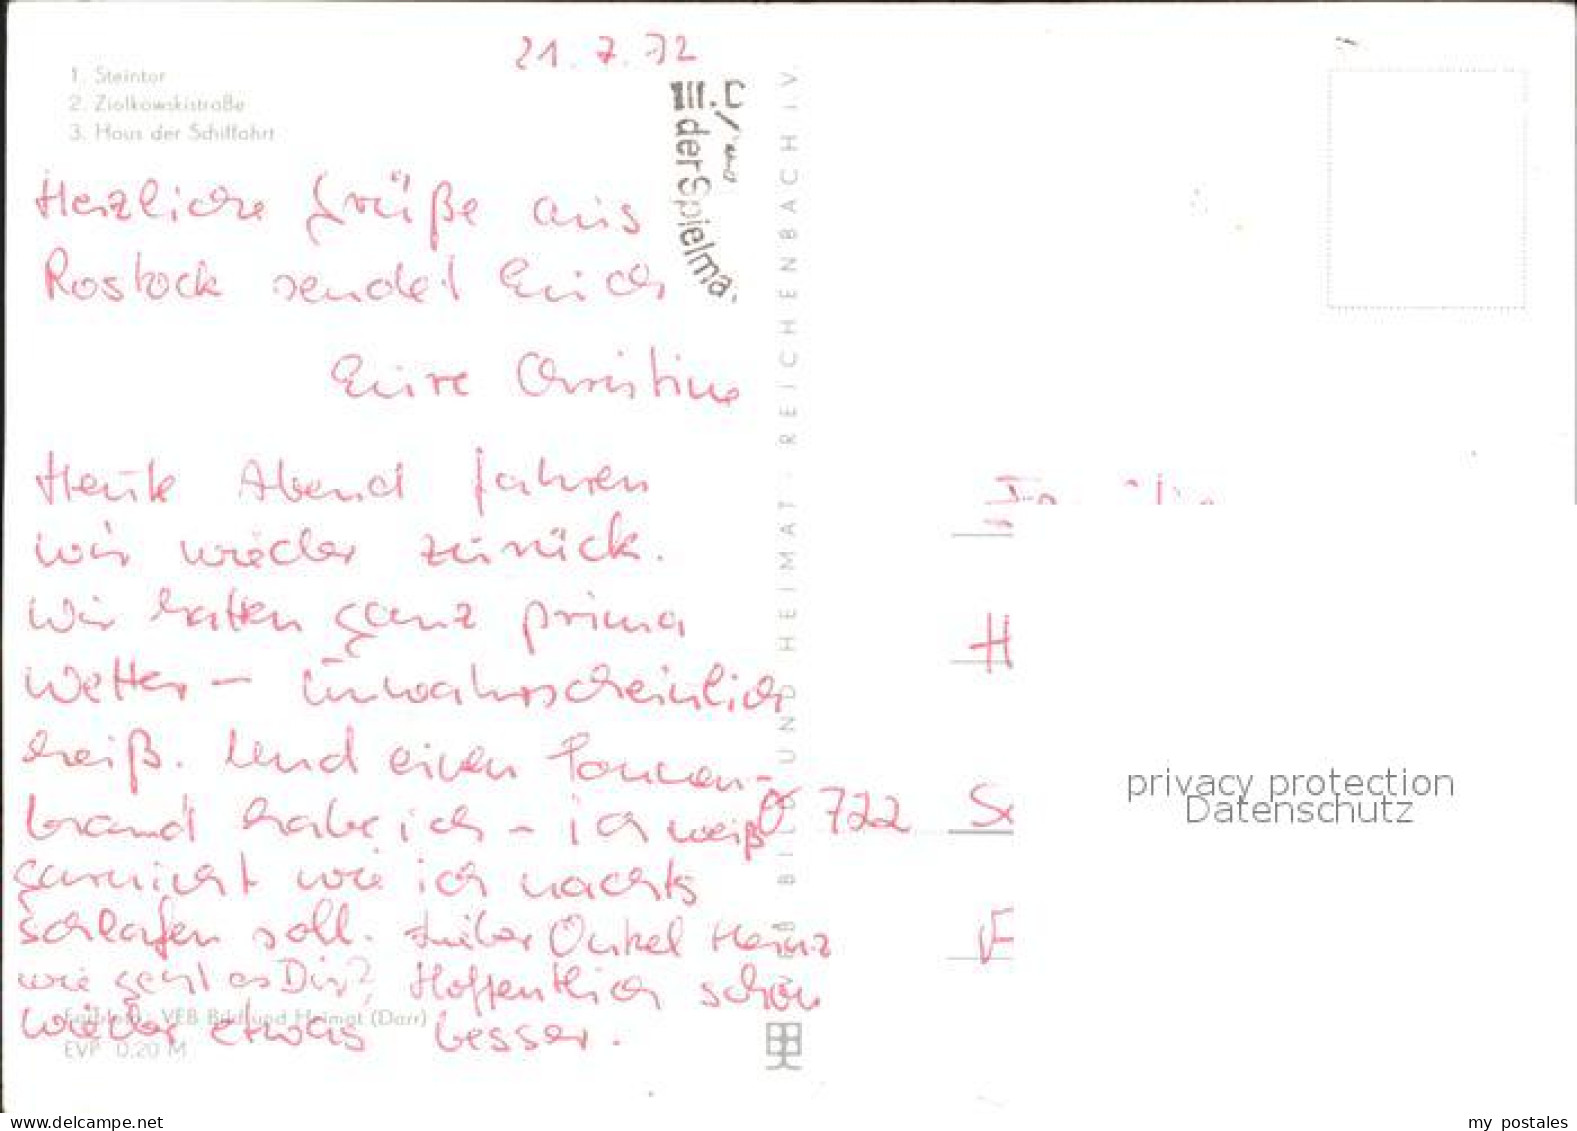 21. 7. 72
1. Steintor
2. Ziolkowskistraße
3. Haus der Schiffahrt
Herzliche Grüße aus
Rostock sendet Euch
Eure Christine
Heute Abend fahren
wir wieder zurück.
Wir hatten ganz prima
Wetter – unwahrscheinlich
heiß. Und einen Sonnen-
brand habe ich – ich weiß
garnicht wie ich nachts
schlafen soll. Lieber Onkel Heinz
wie geht es Dir? Hoffentlich schon
wieder etwas besser.
Farbfoto: VEB Bild und Heimat (Darr)
EVP 0.20 M
VEB BILD UND HEIMAT REICHENBACH I V
III.
der Spielma
722
H
privacy protection
Datenschutz
https://www.delcampe.net
my postales